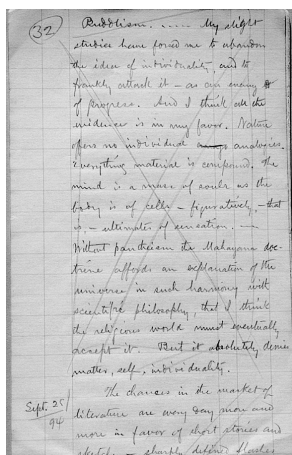 (32)
Buddhism. ..... My slight
studies have forced me to abandon
the idea of individuality, and to
frankly attack it — as an enemy
of progress. And I think all the
evidence is in my favor. Nature
offers no individual analogies.
Everything material is compound. The
mind is a mass of souls as the
body is of cells — figuratively, — that
is — ultimates of sensation. —
Without pantheism the Mahayana doc-
trine affords an explanation of the
universe in such harmony with
scientific philosophy, that I think
the religious world must eventually
accept it. But it absolutely denies
matter, self, individuality.
Sept. 25/
94
The changes in the market of
literature are every day more and
more in favor of short stories and